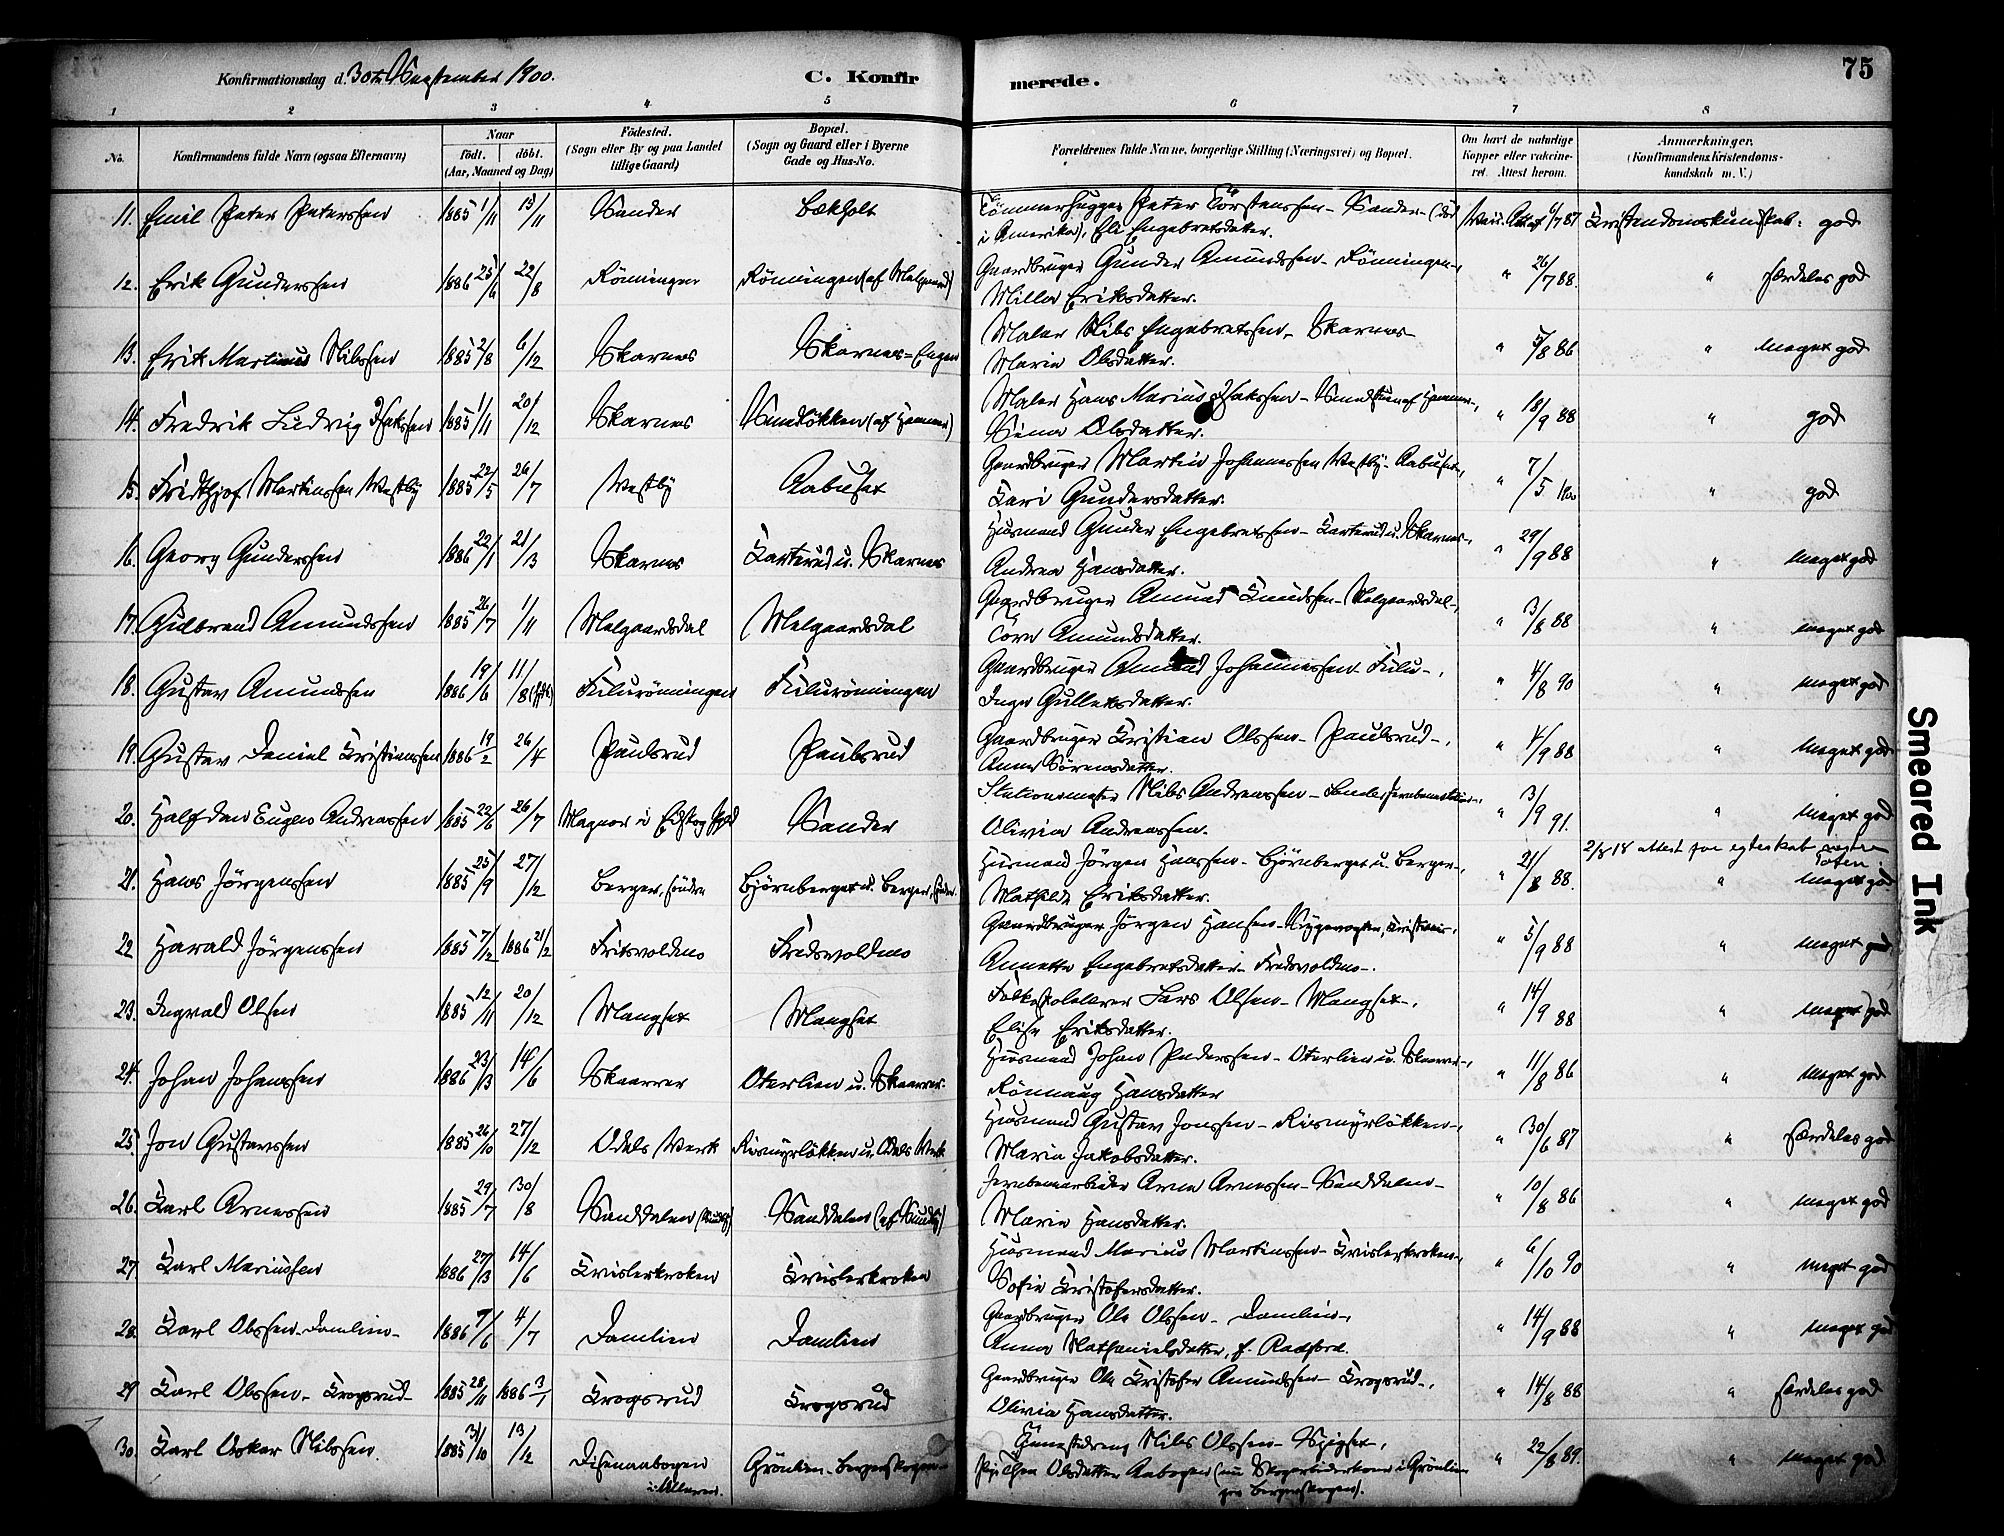 Konfirmationsdag d. 30te September 1900.
C. Konfirmerede.
75
1 2 3 4 5 6 7 8
No.
Konfirmandens fulde Navn (ogsaa Efternavn)
Naar
födt. döbt.
(Aar, Maaned og Dag)
Födested.
(Sogn eller By og paa Landet
tillige Gaard)
Bopæl.
(Sogn og Gaard eller i Byerne
Gade og Hus-No.
Forældrenes fulde Navne, borgerlige Stilling (Næringsvei) og Bopæl.
Om havt de naturlige
Kopper eller vakcine-
ret. Attest herom.
Anmærkninger.
(Konfirmandens Kristendoms-
kundskab m. V.)
11. Emil Peter Peterssen 1885 1/11 13/11 Sander Bækholt Tömmerhugger Peter Torstenssen - Sander - (död
i Amerika), Eli Engebretsdatter. Kristendomskunskab: god
12. Erik Gunderssen 1886 25/6 22/8 Rönningen Rönningen (af Melgaard) Gaardbruger Gunder Amundssen - Rönningen -,
Milla Eriksdatter. " 26/7 88. " særdeles god
13. Erik Martinus Nilssen 1885 2/8 6/12 Skarnes Skarnes-Engen Maler Nils Engebretssen - Skarnes -
Maria Olsdatter. " 5/8 86 " meget god
14. Fredrik Ludvig Isakssen 1885 1/11 20/12 Skarnes Maler Hans Marius Isakssen -
Sina Olsdatter. " 18/9 88 " god
15. Fridthjof Martinssen Westby 1885 22/5 26/7 Westby Aabuset Gaardbruger Martin Johannessen Westby - Aabuset,
Kari Gundersdatter. " 7/5 1900 " god
16. Georg Gunderssen 1886 22/1 21/13 Skarnes Karterud u. Skarnes Husmand Gunder Engebretssen - Karterud u. Skarnes -,
Andrea Hansdatter. " 29/9 88 " meget god
17. Gulbrand Amundssen 1885 26/7 1/11 Melgaardsdal Melgaardsdal Gaardbruger Amund Knudssen - Melgaardsdal -,
Tora Amundsdatter. " 3/8 88 " meget god
18. Gustav Amundssen 1886 19/6 11/8 Fulurönningen Fulurönningen Gaardbruger Amund Johannessen Fulu -,
Inger Gulleksdatter. " 4/8 90 " meget god
19. Gustav Daniel Kristianssen 1886 19/2 26/4 Paulsrud Paulsrud Gaardbruger Kristian Olssen - Paulsrud -,
Anne Sörensdatter. " 4/9 88 " meget god
20. Halfdan Eugen Andreassen 1885 22/6 26/7 Magnor i Eidskog Sander Stationsmester Nils Andreassen - Sander
Olivia Andreassen. " 3/9 91. " meget god
2/8 18 attest for egteskab
21. Hans Jörgenssen 1885 25/9 27/12 Berger, söndre Björnberget u. Berger, söndre Husmand Jörgen Hanssen - Björnberget u. Berger -,
Mathilde Eriksdatter. " 21/8 88. " meget god
22 Harald Jörgenssen 1885 7/12 1886 21/2 Fritsvoldmo Fredsvoldmo Gaardbruger Jörgen Hansen -
Annette Engebretsdatter - Fredsvoldmo -. " 5/9 88 " meget god
23. Ingvald Olsen 1885 12/11 20/12 Mangset Mangset Folkeskolelærer Lars Olsen - Mangset -,
Elise Eriksdatter. " 14/9 88 " meget god
24. Johan Johanssen 1886 23/3 14/6 Skaarrer Oterlien u. Skaarrer. Husmand Johan Pederssen - Oterlien u. Skaarrer -,
Rönnaug Hansdatter " 11/8 86 " meget god
25. Jon Gustavssen 1885 26/10 27/12 Odals Werk Rismyrlökken u. Odals Werk Husmand Gustav Jonssen - Rismyrlökken -,
Maria Jakobsdatter. " 30/6 87 " særdeles god
26. Karl Arnessen 1885 29/7 30/8 Sanddalen Sanddalen Jernbanearbeider Arne Arnessen - Sanddalen -
Maria Hansdatter. " 10/8 86 " meget god
27 Karl Mariussen 1886 27/3 14/6 Kvislerkroken Kvislerkroken Husmand Marius Martinssen - Kvislerkroken -,
Sofie Kristofersdatter. " 6/10 90 " meget god
28. Karl Olssen - Damlien - 1886 7/6 4/7 Damlien Damlien Gaardbruger Ole Olssen - Damlien -,
Anna Nathanielsdatter, f. Radford. " 14/9 88 " meget god
29 Karl Olssen - Krogsrud - 1885 28/11 1886 3/1 Krogsrud Krogsrud Gaardbruger Ole Kristofer Amundssen - Krogsrud -,
Olivia Hansdatter. " 14/8 88 " særdeles god
30. Karl Oskar Nilssen 1885 31/10 13/12 Disenaabogen
i Ullern. Grönlien - Bergerskogen - Tjenestedreng Nils Olssen - Spigset,
Olsdatter Aabogen (nu i Grönlien " 22/8 89. " meget god
Smeared Ink